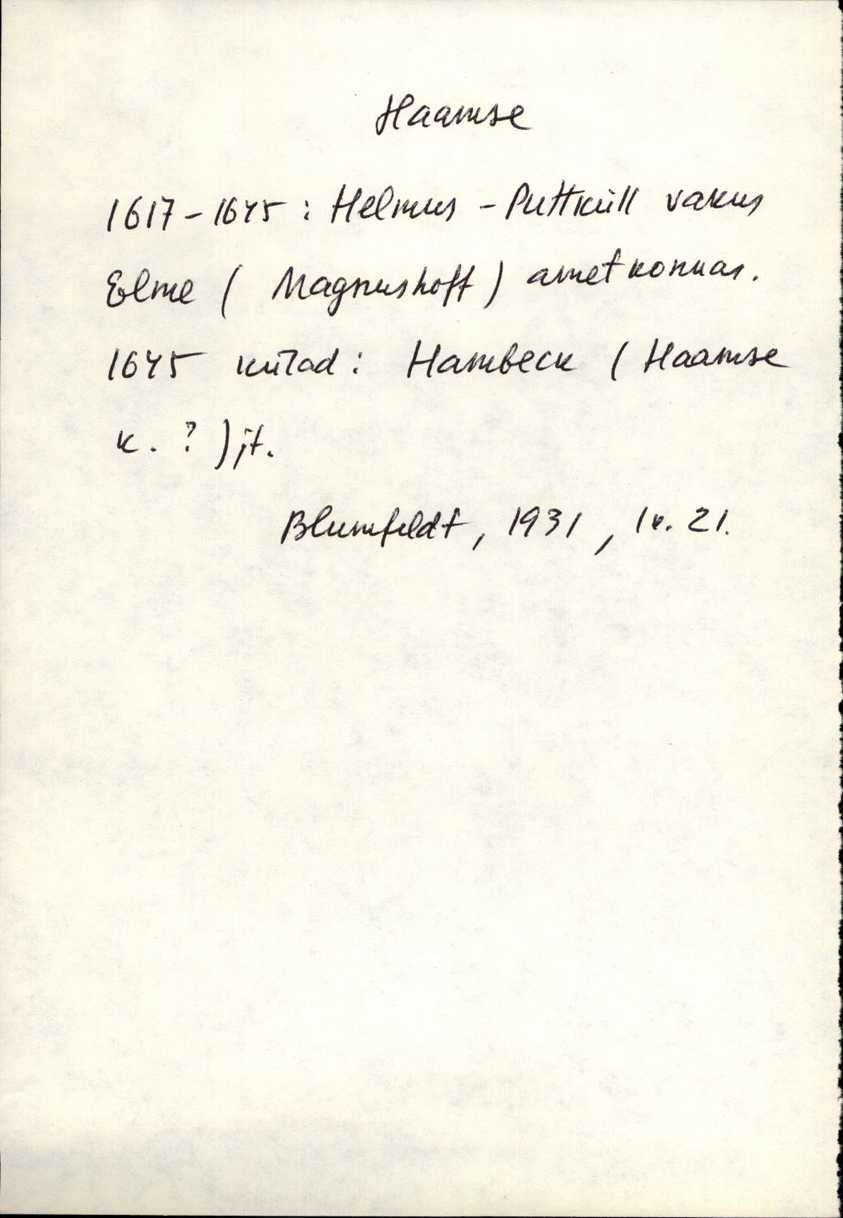 Haamse
1617-1645 : Helmus - Puttküll vakus
Elme ( Magnushoff ) ametkonnas.
1645 külad : Hambeck ( Haamse
k. ? ) jt.
Blumfeldt, 1931, lk. 21.